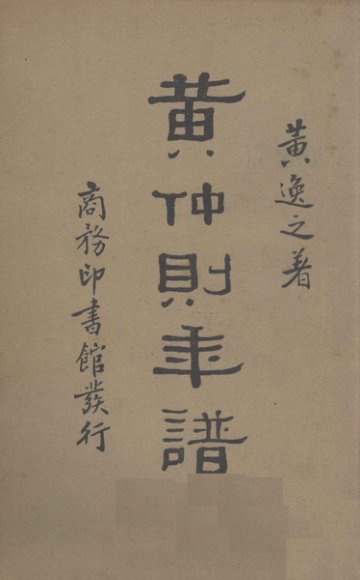 黃逸之著
黃仲則年譜
商務印書館發行